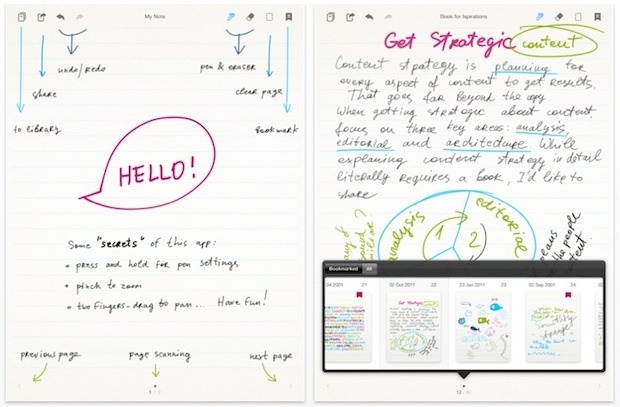 My Note
undo/redo
pen & eraser
share
clear page
to library
bookmark
HELLO!
Some "secrets" of this app:
• press and hold for pen settings
• pinch to zoom
• two fingers-drag to pan... Have fun!
previous page
page scanning
next page
1 / 1
Book for Ispirations
Get Strategic content
Content strategy is planning for
every aspect of content to get results.
That goes far beyond the app
When getting strategic about content,
focus on three key areas: analysis,
editorial and architecture While
explaining content strategy in detail
literally requires a book, I'd like to
share
analysis
1
2
editorial
the people
Bookmarked
All
04.2001
21
02 Oct 2011
22
23 Jan 2011
23
02 Sep 2001
24
Get Strategic